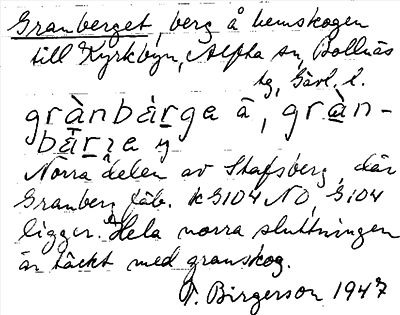 Granberget, berg å hemskogen
till Kyrkbyn, Alfta sn, Bollnäs
tg, Gävl. l.
grànbàrga â, gràn-
bàrze
Norra delen av Stafsberg, där
Granberg fäb. KG104 NO, G104
ligger. Hela norra sluttningen
är täckt med granskog.
T. Birgerson 1947